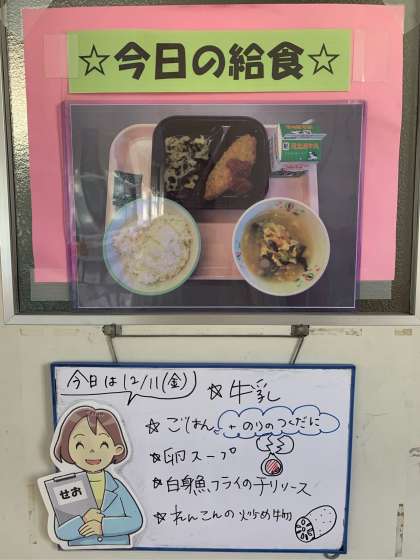 ☆今日の給食☆
今日は12/11(金)
☆牛乳
☆ごはん + のりのつくだに
☆卵スープ
☆白身魚フライのチリソース
☆れんこんの炒め物
せお